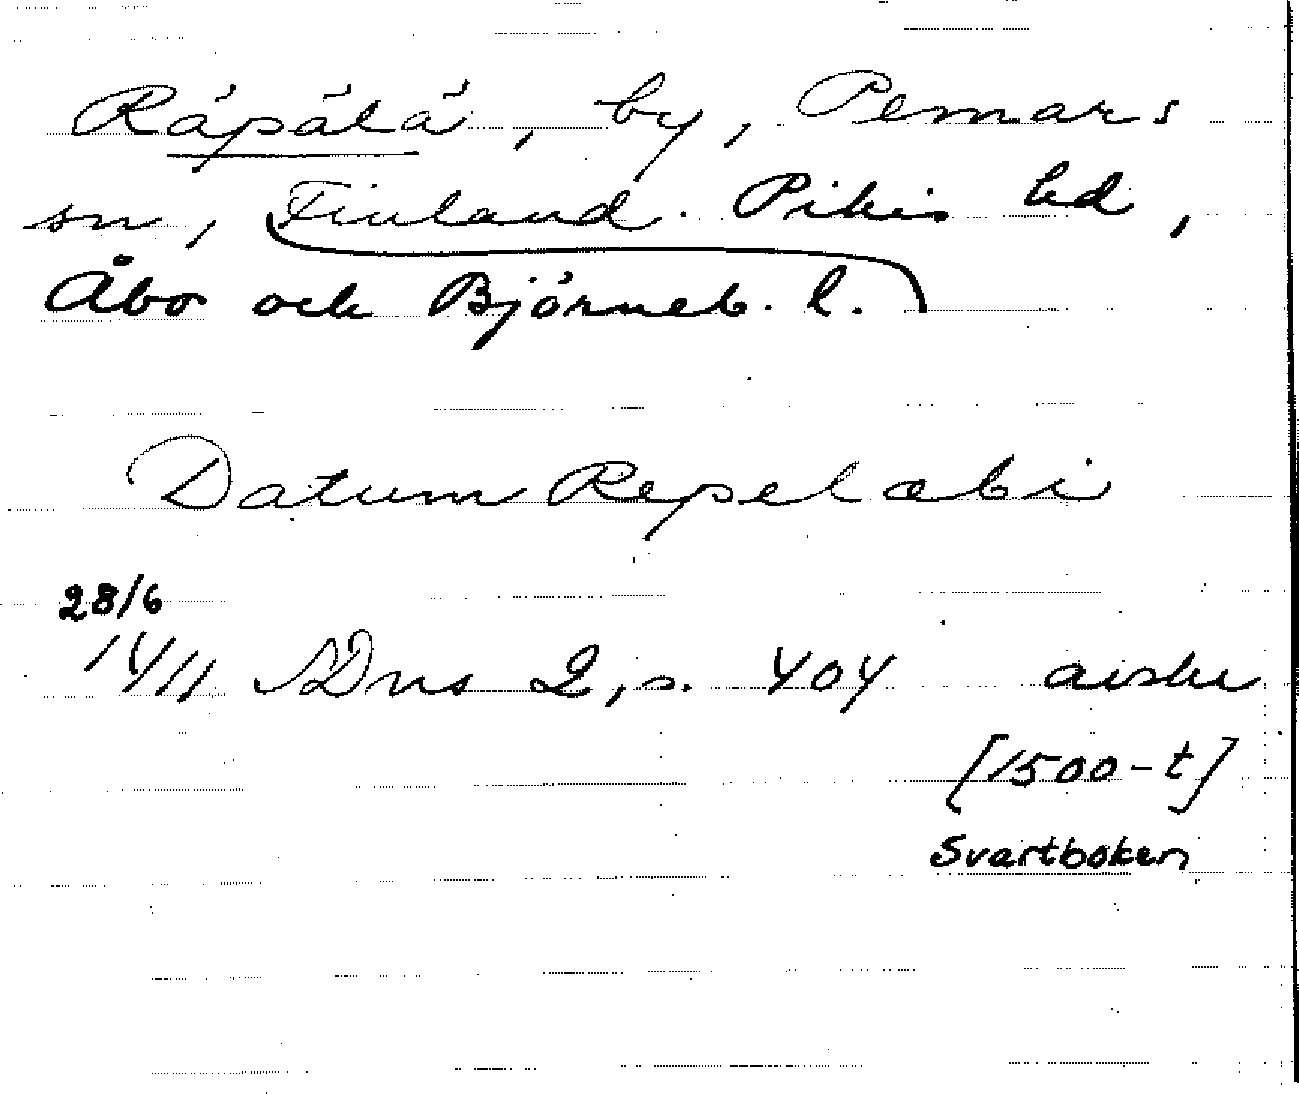 Räpälä, by, Pemars
sn, Finland. Pikis hd,
Åbo och Björneb. l.
Datum Repelæbi
28/6
14/11 SDns 2, s. 404 avskr
[1500-t]
Svartboken